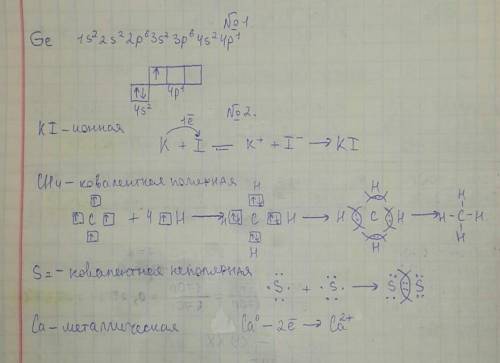 №1
Ge 1s² 2s² 2p⁶ 3s² 3p⁶ 4s² 4p¹
↑
↑↓ 4p¹
4s²
№2.
KI - ионная
1ē
K + I = K⁺ + I⁻ → KI
CH4 - ковалентная полярная
C + 4 ↑ H → H C H → H C H → H-C-H
S= - ковалентная неполярная
·S· + ·S· → S S
Ca - металлическая Ca⁰ - 2ē → Ca²⁺